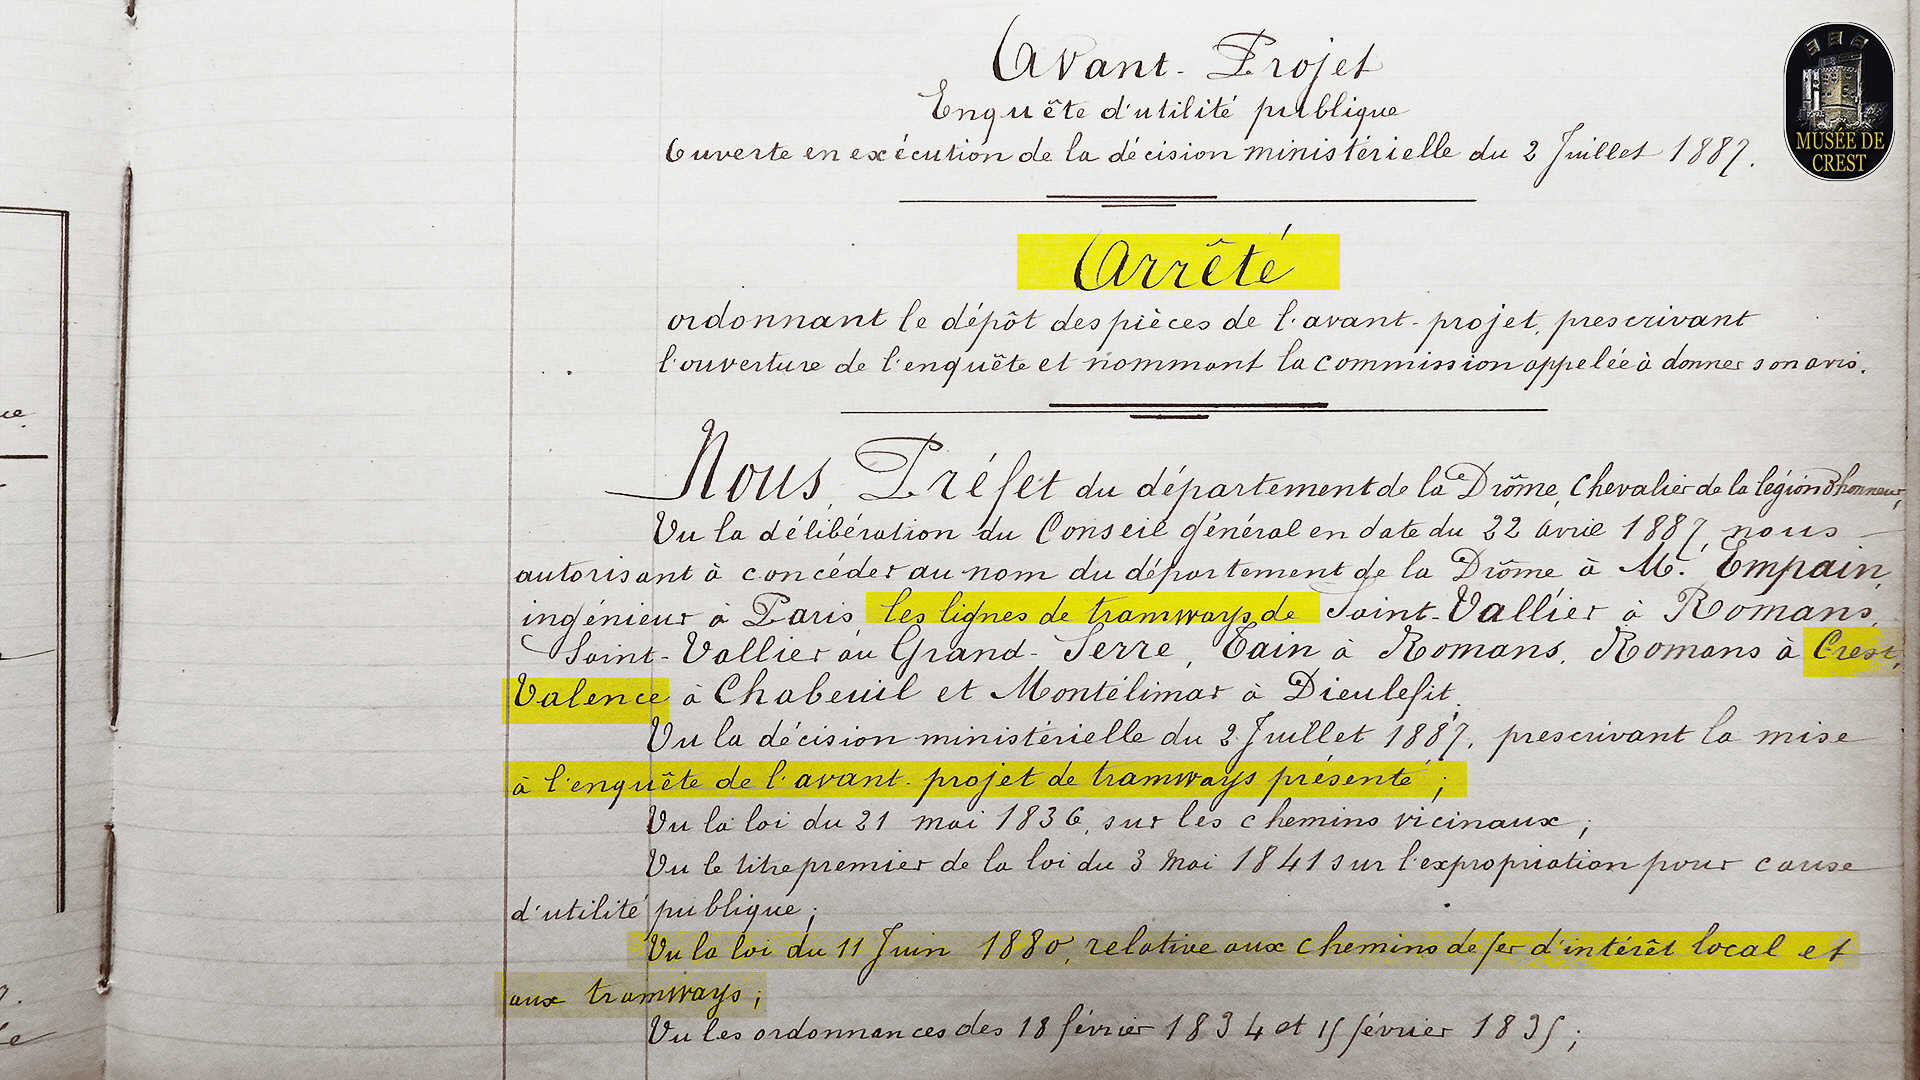 Avant-Projet
Enquête d'utilité publique
Ouverte en exécution de la décision ministérielle du 2 Juillet 1887.
MUSÉE DE
CREST
Arrêté
ordonnant le dépôt des pièces de l'avant-projet, prescrivant
l'ouverture de l'enquête et nommant la commission appelée à donner son avis.
Nous, Préfet du département de la Drôme, Chevalier de la légion d'honneur,
Vu la délibération du Conseil général en date du 22 avril 1887, nous
autorisant à concéder au nom du département de la Drôme à Mr. Empain,
ingénieur à Paris, les lignes de tramways de Saint-Vallier à Romans,
Saint-Vallier au Grand-Serre, Tain à Romans, Romans à Crest,
Valence à Chabeuil et Montélimar à Dieulefit;
Vu la décision ministérielle du 2 Juillet 1887, prescrivant la mise
à l'enquête de l'avant-projet de tramways présenté;
Vu la loi du 21 mai 1836, sur les chemins vicinaux;
Vu le titre premier de la loi du 3 Mai 1841 sur l'expropriation pour cause
d'utilité publique;
Vu la loi du 11 Juin 1880, relative aux chemins de fer d'intérêt local et
aux tramways;
Vu les ordonnances des 18 février 1834 et 15 février 1835;